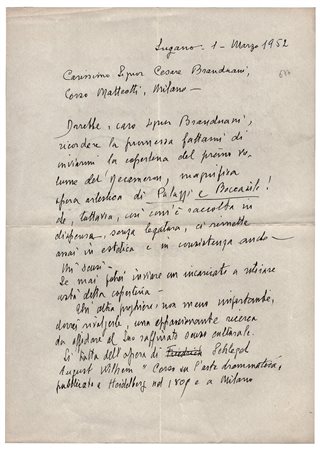 Lugano - 1 - Marzo 1952
Carissimo Signor Cesare Branduani,
Corso Matteotti, Milano -
Dovette, caro Signor Branduani,
ricordare la promessa fattami di
inviarmi la copertina del primo vo-
lume del Decameron, magnifica
opera artistica di Palazzi e Boccasile!
che, tuttavia, così com'è raccolta in
dispensa, senza legatura, ci rimette
assai in estetica e in consistenza anche -
Mi scusi -
Se mai potrei inviare un incaricato a ritirare
detta copertina -
Un'altra preghiera, non meno importante,
dovrei rivolgerle, una appassionante ricerca
da affidare al suo raffinato senso culturale.
Si tratta dell'opera di Friedrich Schlegel
August Wilhelm "Corso sull'arte drammatica,
pubblicato a Heidelberg nel 1809 e a Milano